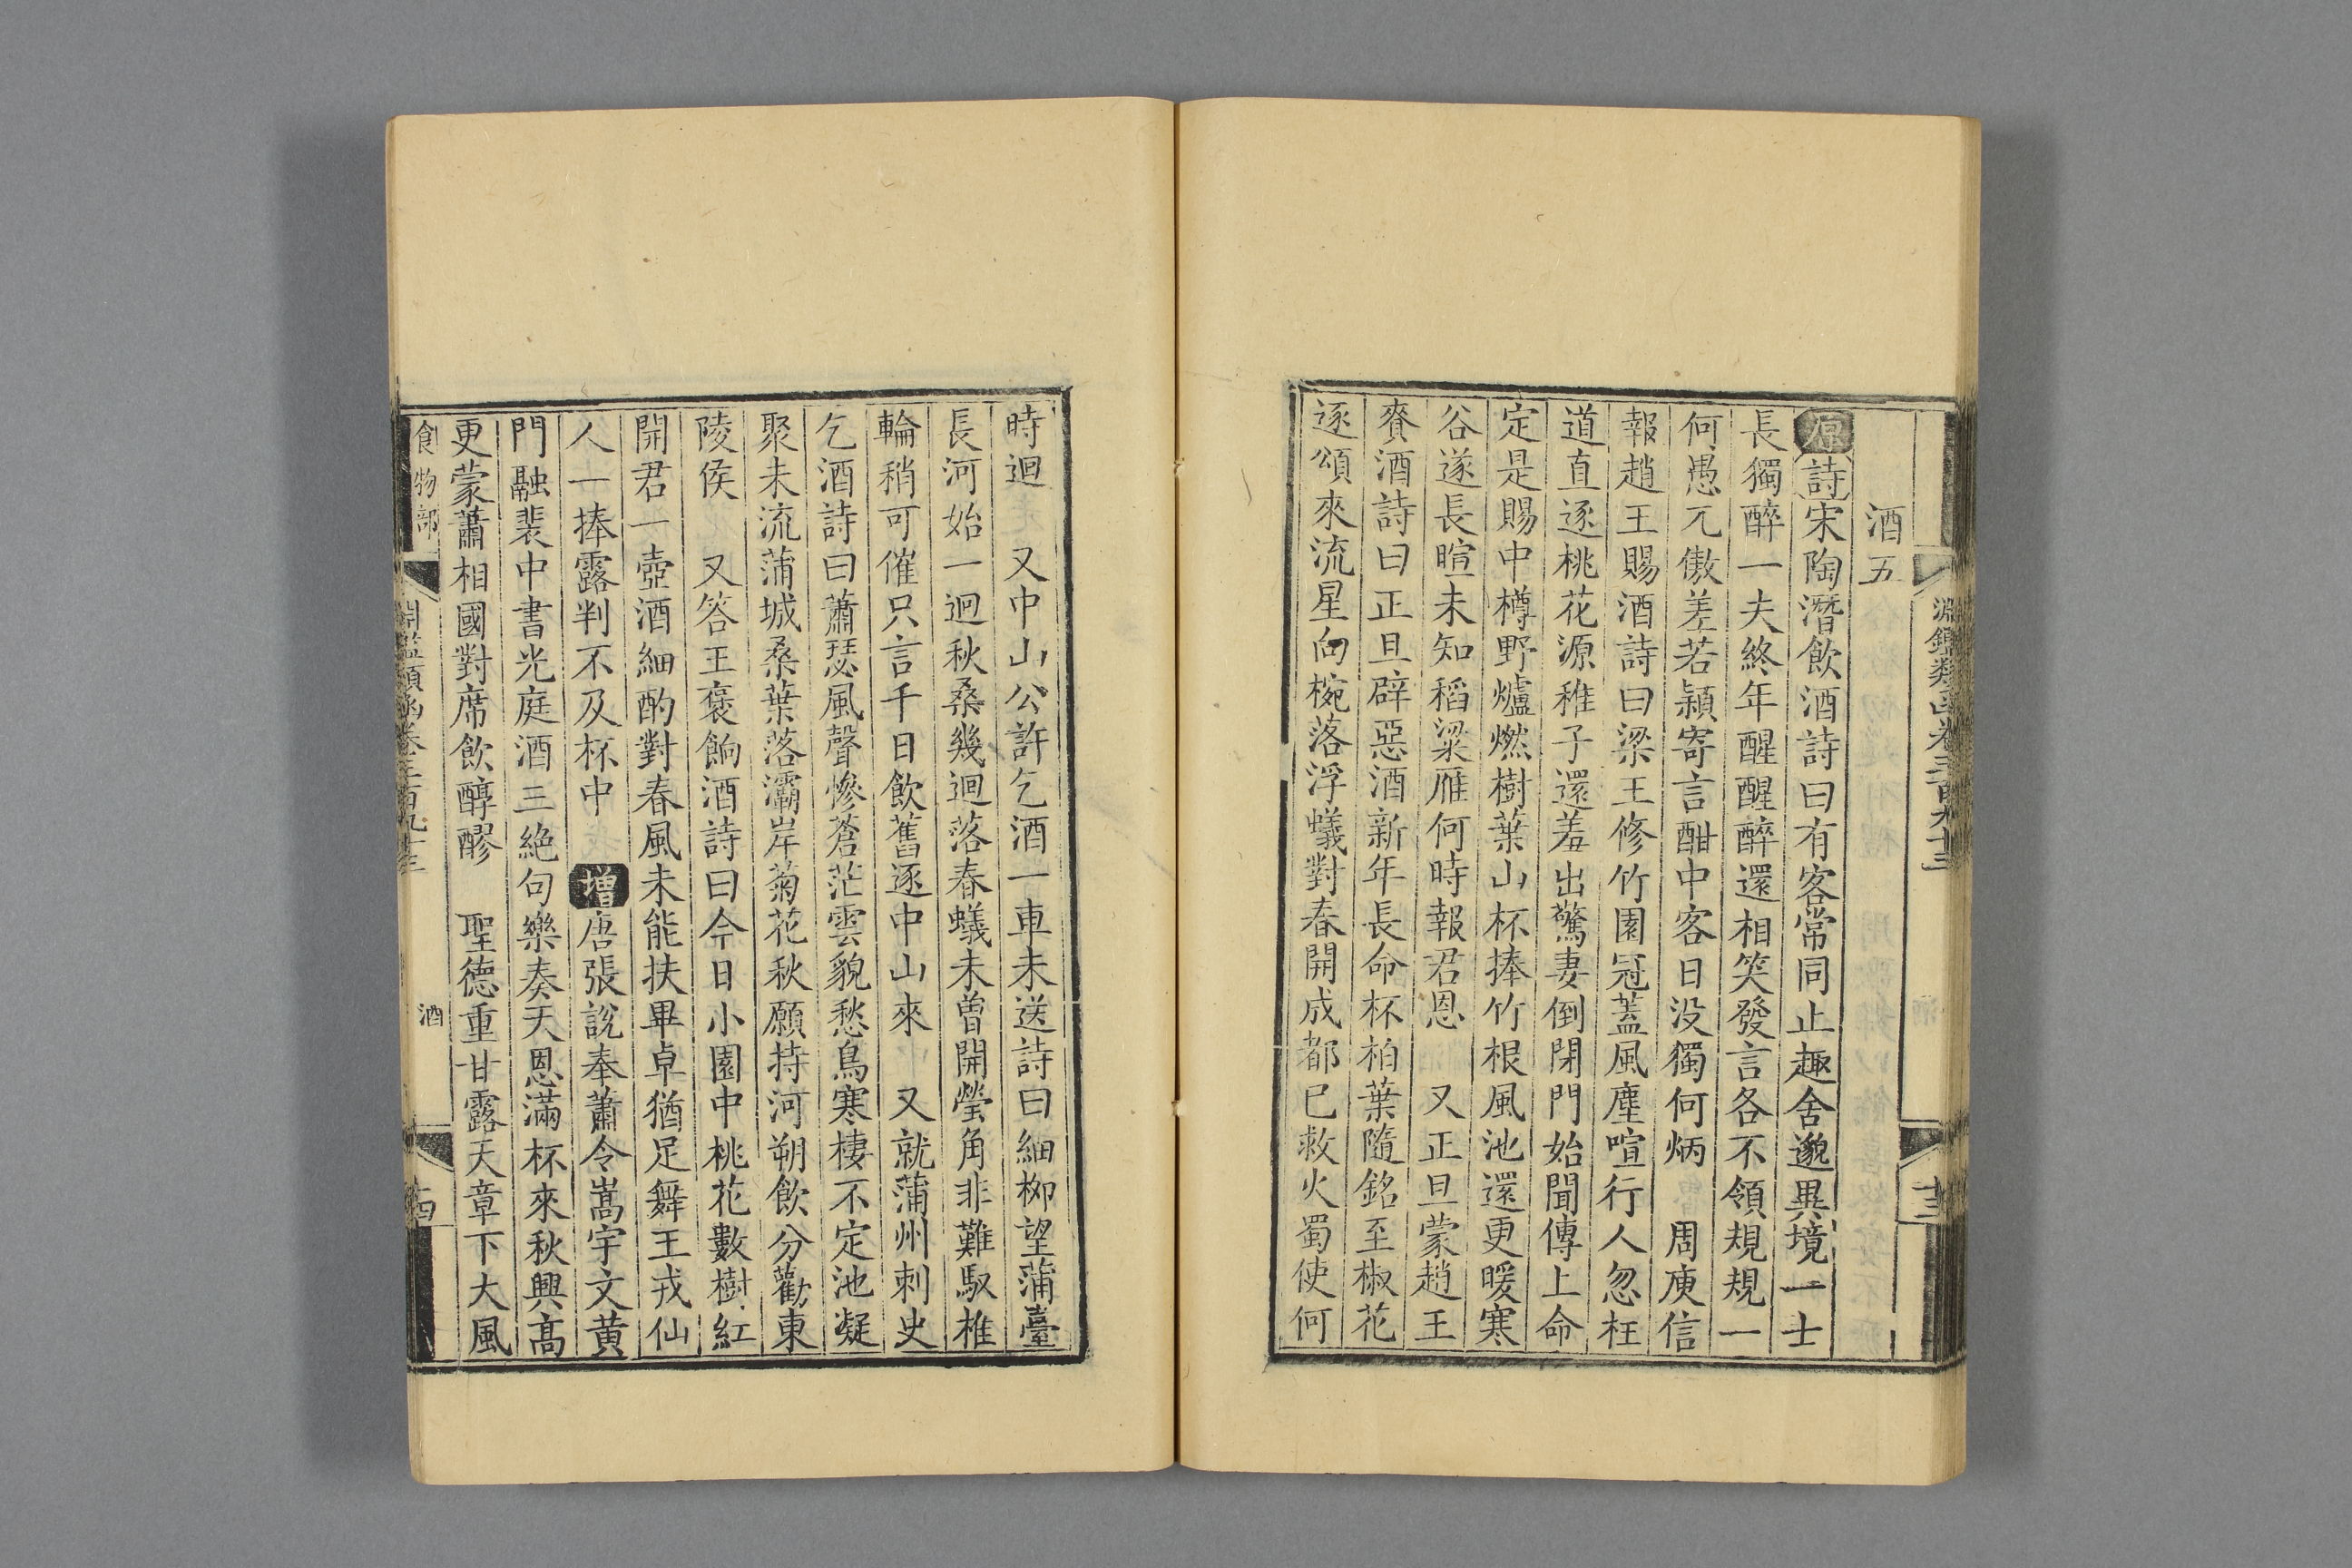 淵鑑類函卷三百九十三
十三
酒五
原詩宋陶潛飲酒詩曰有客常同止趣舍邈異境一士
長獨醉一夫終年醒醒醉還相笑發言各不領規規一
何愚兀傲差若潁寄言酣中客日没獨何炳　周庾信
報趙王賜酒詩曰梁王修竹園冠蓋風塵喧行人忽枉
道直逐桃花源稚子還羞出驚妻倒閉門始聞傳上命
定是賜中樽野爐燃樹葉山杯捧竹根風池還更暖寒
谷遂長暄未知稻粱雁何時報君恩　又正旦蒙趙王
賚酒詩曰正旦辟惡酒新年長命杯柏葉隨銘至椒花
逐頌來流星向椀落浮蟻對春開成都已救火蜀使何
時迴　又中山公許乞酒一車未送詩曰細桺望蒲臺
長河始一迴秋桑幾迴落春蟻未曾開瑩角非難馭椎
輪稍可催只言千日飲舊逐中山來　又就蒲州刺史
乞酒詩曰蕭瑟風聲慘蒼茫雲貌愁鳥寒棲不定池凝
聚未流蒲城桑葉落灞岸菊花秋願持河朔飲分勸東
陵侯　又答王褒餉酒詩曰今日小園中桃花數樹紅
開君一壺酒細酌對春風未能扶畢卓猶足舞王戎仙
人一捧露判不及杯中　增唐張說奉蕭令嵩宇文黄
門融裴中書光庭酒三絶句樂奏天恩滿杯來秋興高
更蒙蕭相國對席飲醇醪　聖德重甘露天章下大風
食物部
淵鑑類函卷三百九十三
酒
十四